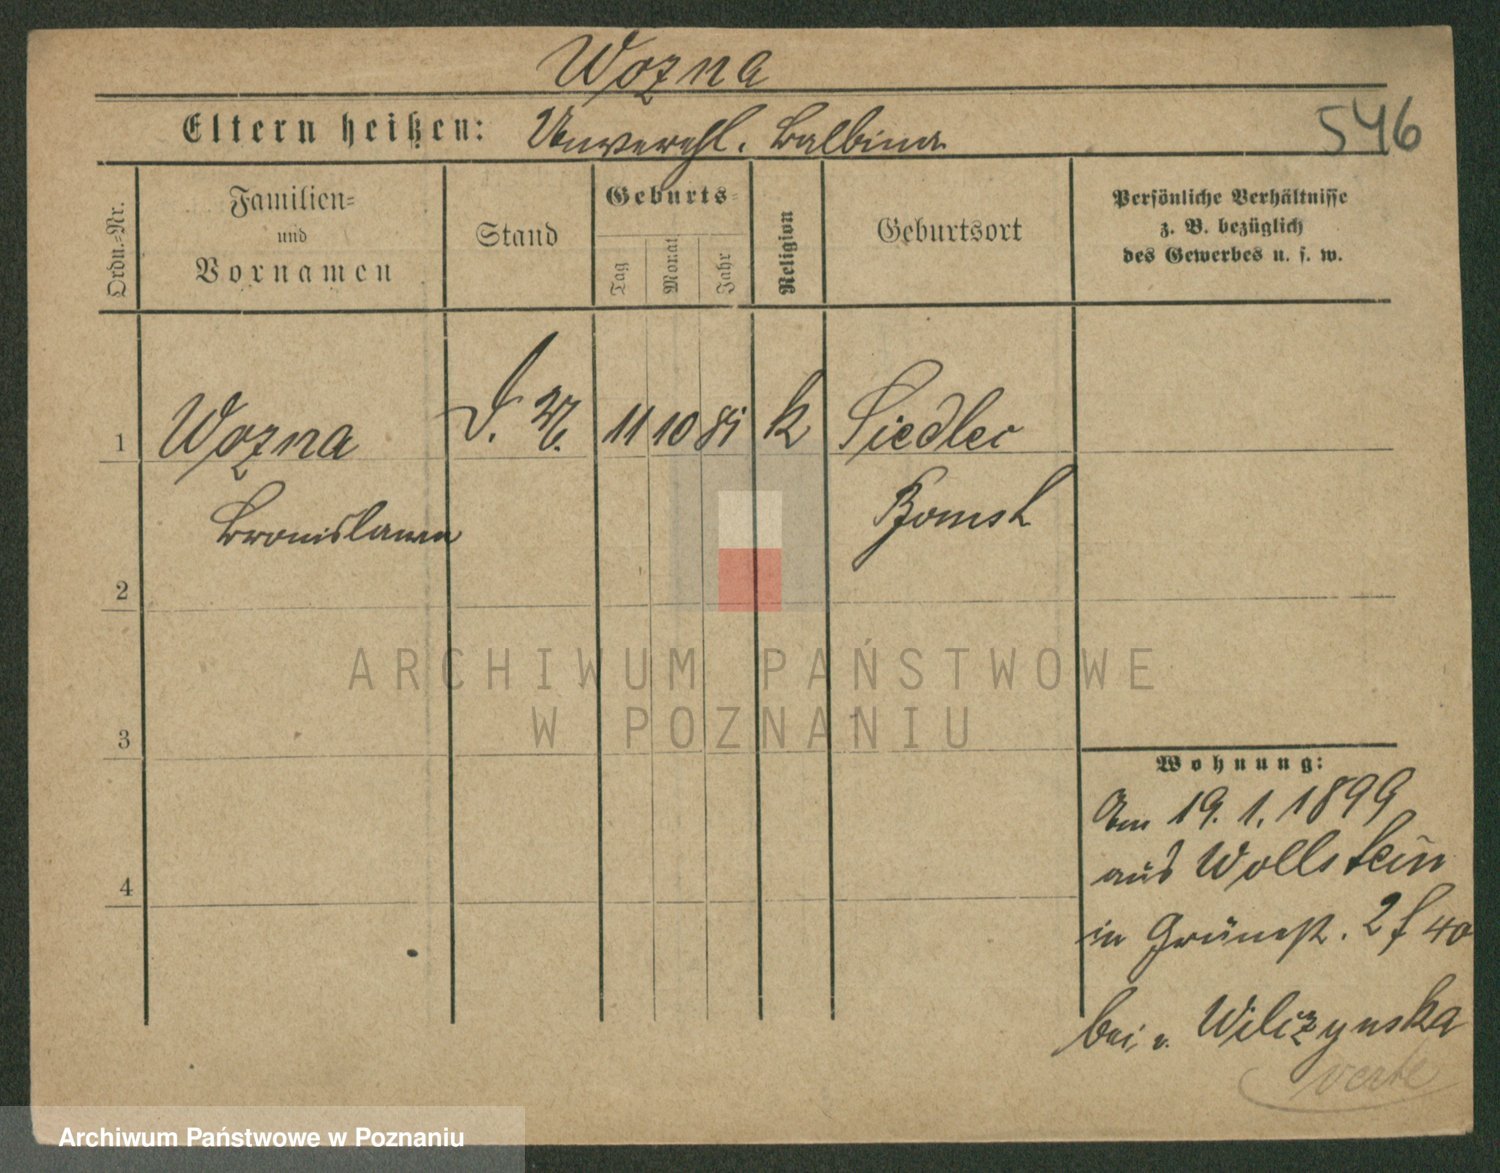 Wozna
Eltern heißen: Unverehl. Balbina
546
Ordn.-Nr.
Familien=
und
Vornamen
Stand
Geburts=
Tag
Monat
Jahr
Religion
Geburtsort
Persönliche Verhältnisse
z. B. bezüglich
des Gewerbes u. s. w.
1 Wozna 11 10 81 k Siedlec
Bronislawa Bomst
2
3
4
Wohnung:
Am 19. 1. 1899
aus Wollstein
in Grünest. 2 f 40
bei v. Wilizynska
verte
ARCHIWUM PAŃSTWOWE
W POZNANIU
Archiwum Państwowe w Poznaniu